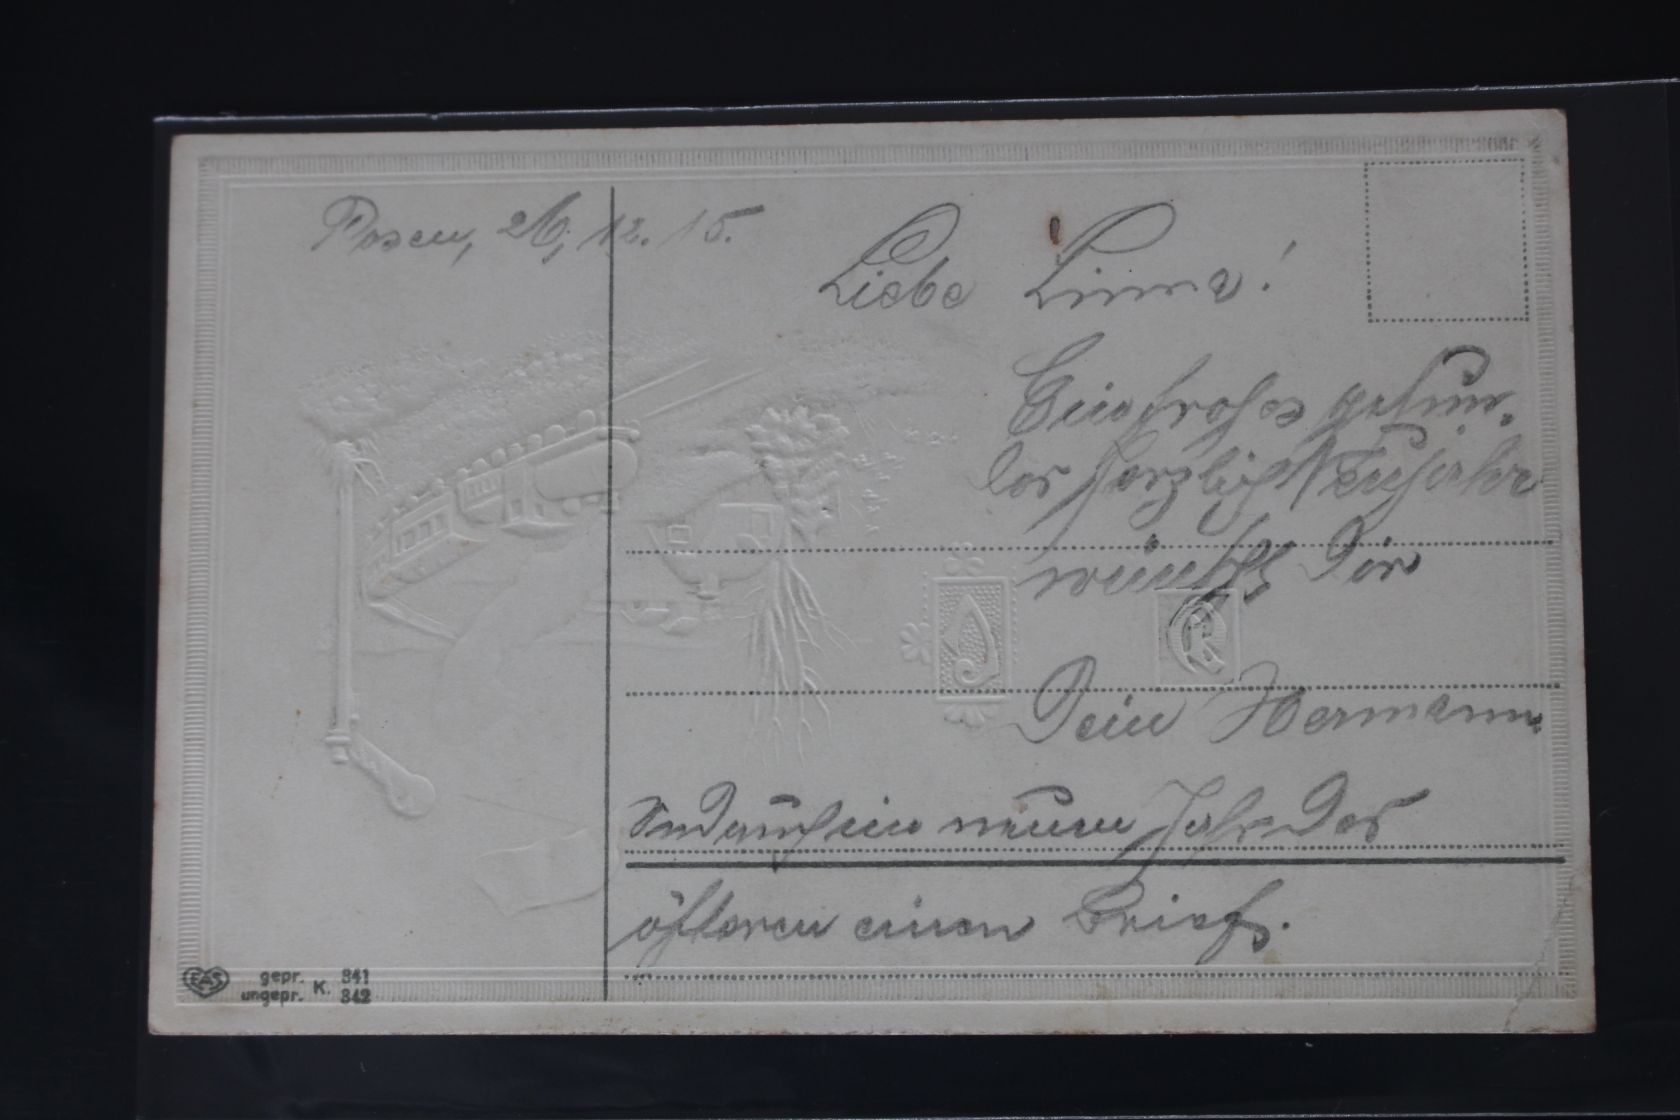 Posen, 26. 12. 15.
Liebe Linna!
Ein frohes gesun-
des herzlich Neujahr
wünscht Dir
Dein Hermann
und auch im neuen Jahr des
öfteren einen Brief.
EAS gepr. K. 341
ungepr. 342